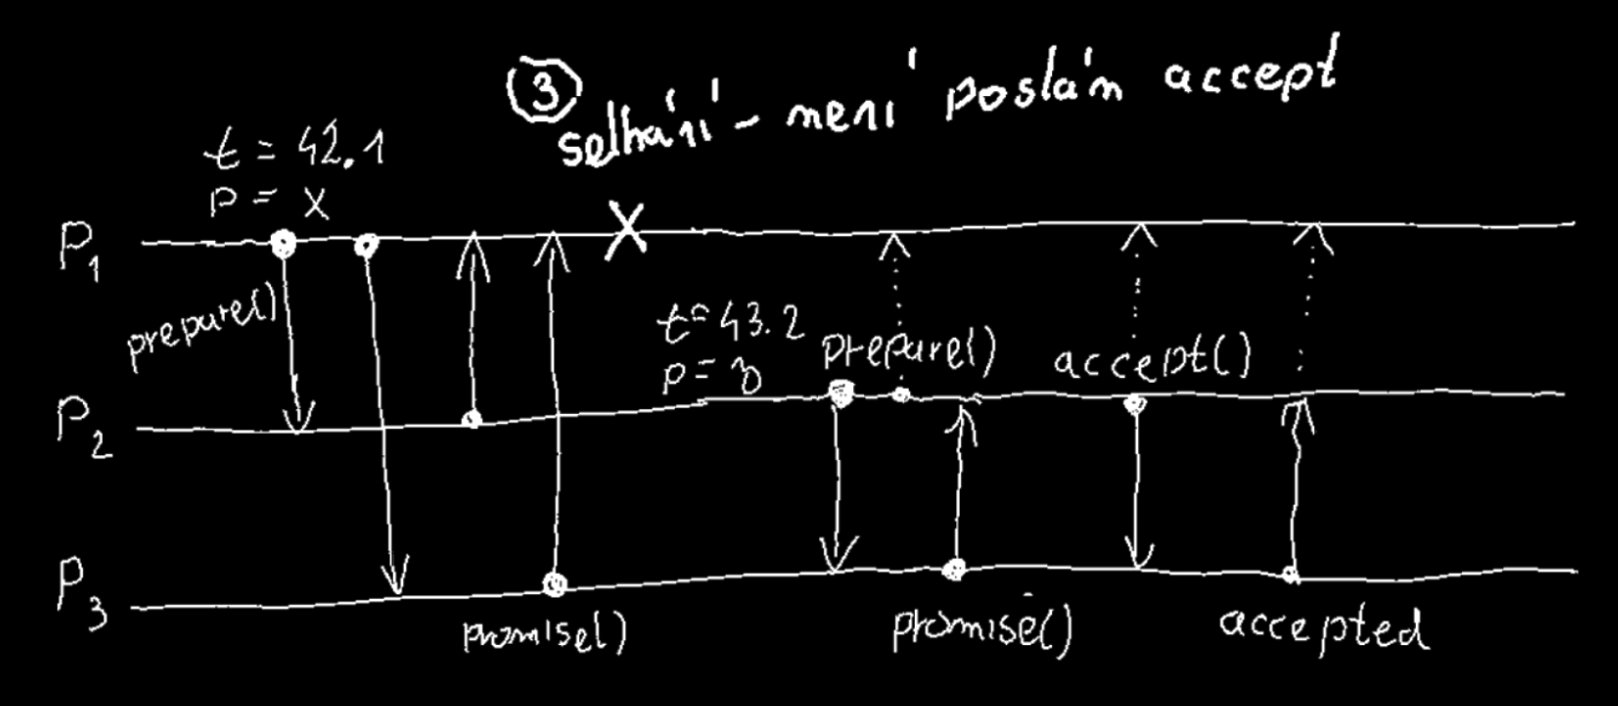 ③ selhání - není poslán accept
t = 42.1
p = x
P1
prepare()
t=43.2
p=3
prepare()
accept()
P2
P3
promise()
promise()
accepted